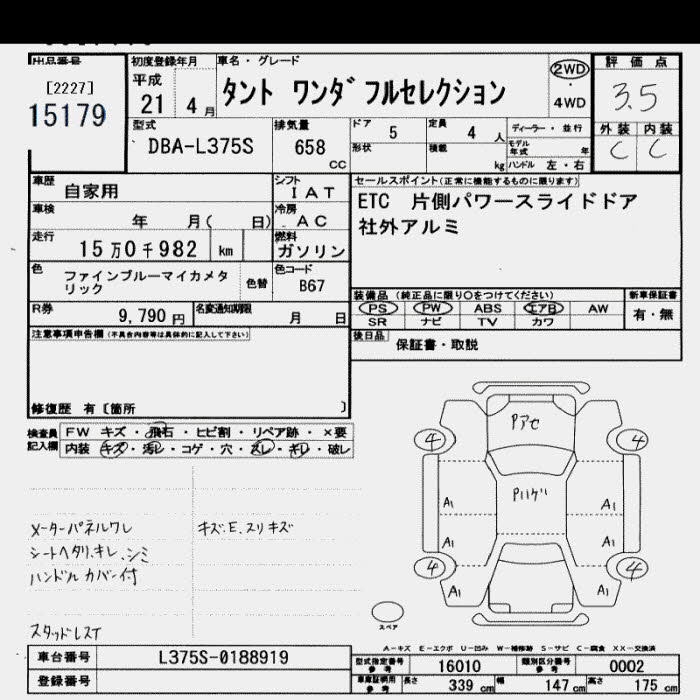 出品番号
[2227]
15179
初度登録年月
平成
21 4 月
車名・グレード
タント ワンダフルセレクション
2WD
・
4WD
評価点
3.5
外装 内装
C C
型式
DBA-L375S
排気量
658
CC
ドア 5
定員 4 人
形状
積載 kg
ディーラー・並行
モデル年式 年
ハンドル 左・右
車歴
自家用
シフト
IAT
セールスポイント(正常に機能するものに限ります)
ETC 片側パワースライドドア
社外アルミ
車検
年 月( 日)
冷房
AC
走行
15万0千982 km
燃料
ガソリン
色
ファインブルーマイカメタリック
色替
色コード
B67
装備品 (純正品に限り○をつけてください)
新車保証書
PS PW ABS エアB AW
有・無
SR ナビ TV カワ
R券
9,790 円
名変通知期限
月 日
後日品
保証書・取説
注意事項申告欄(不具合内容等は具体的に記入して下さい)
修復歴 有〔箇所 〕
検査員
記入欄
FW キズ・飛石・ヒビ割・リペア跡・×要
内装 キズ・汚レ・コゲ・穴・スレ・キレ・破レ
メーターパネルワレ
シートヘタリ、キレ、シミ
ハンドルカバー付
スタッドレスT
キズ、E、スリキズ
Pアセ
4
4
A1
A1
A1
A1
4
4
A1
A1
スペア
A-キズ E-エクボ U-凹み W-補修跡 S-サビ C-腐食 XX-交換済
車台番号
L375S-0188919
登録番号
型式指定番号
参考
16010
類別区分番号
参考
0002
車庫証明用
参考
長さ
339 cm
幅
147 cm
高さ
175 cm